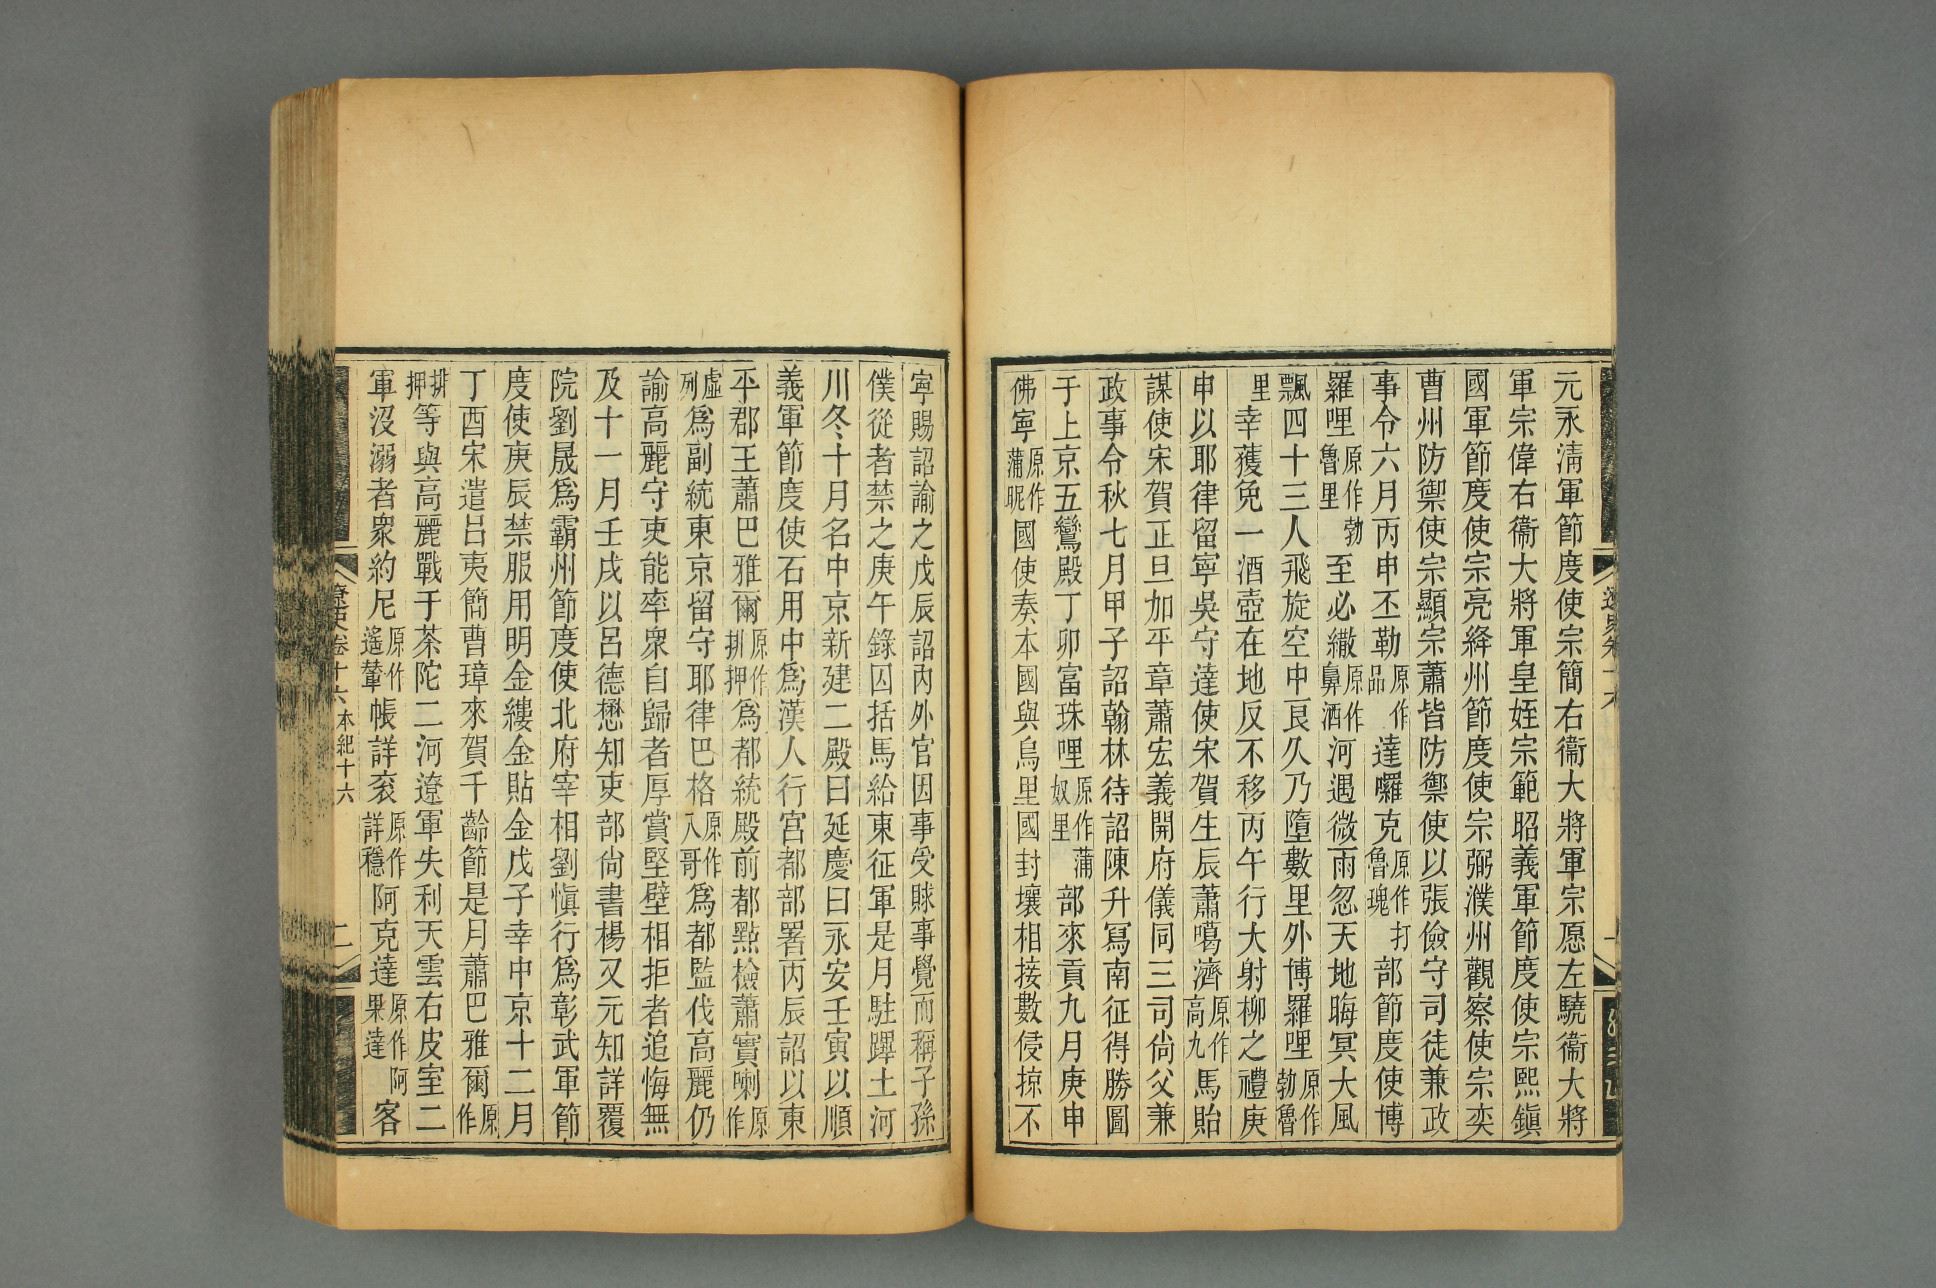 元永淸軍節度使宗簡右衞大將軍宗愿左驍衞大將
軍宗偉右衞大將軍皇姪宗範昭義軍節度使宗熙鎭
國軍節度使宗亮絳州節度使宗弼濮州觀察使宗奕
曹州防禦使宗顯宗蕭皆防禦使以張儉守司徒兼政
事令六月丙申丕勒原作品達囉克原作打魯瑰部節度使博
羅哩原作勃魯里至必繖原作鼻洒河遇微雨忽天地晦冥大風
飄四十三人飛旋空中良久乃墮數里外博羅哩原作勃魯
里幸獲免一酒壺在地反不移丙午行大射柳之禮庚
申以耶律留寧吳守達使宋賀生辰蕭噶濟原作高九馬貽
謀使宋賀正旦加平章蕭宏義開府儀同三司尙父兼
政事令秋七月甲子詔翰林待詔陳升冩南征得勝圖
于上京五鸞殿丁卯富珠哩原作蒲奴里部來貢九月庚申
佛寧原作蒲昵國使奏本國與烏里國封壤相接數侵掠不
寧賜詔諭之戊辰詔內外官因事受賕事覺而稱子孫
僕從者禁之庚午錄囚括馬給東征軍是月駐蹕土河
川冬十月名中京新建二殿曰延慶曰永安壬寅以順
義軍節度使石用中爲漢人行宮都部署丙辰詔以東
平郡王蕭巴雅爾原作排押爲都統殿前都點檢蕭實喇原作
虛列爲副統東京留守耶律巴格原作八哥爲都監伐高麗仍
諭高麗守吏能率衆自歸者厚賞堅壁相拒者追悔無
及十一月壬戌以呂德懋知吏部尙書楊又元知詳覆
院劉晟爲霸州節度使北府宰相劉愼行爲彰武軍節
度使庚辰禁服用明金縷金貼金戊子幸中京十二月
丁酉宋遣呂夷簡曹璋來賀千齡節是月蕭巴雅爾原作
排押等與高麗戰于茶陀二河遼軍失利天雲右皮室二
軍沒溺者衆約尼原作遙輦帳詳袞原作詳穩阿克達原作阿果達客
遼史卷十六 本紀十六 二